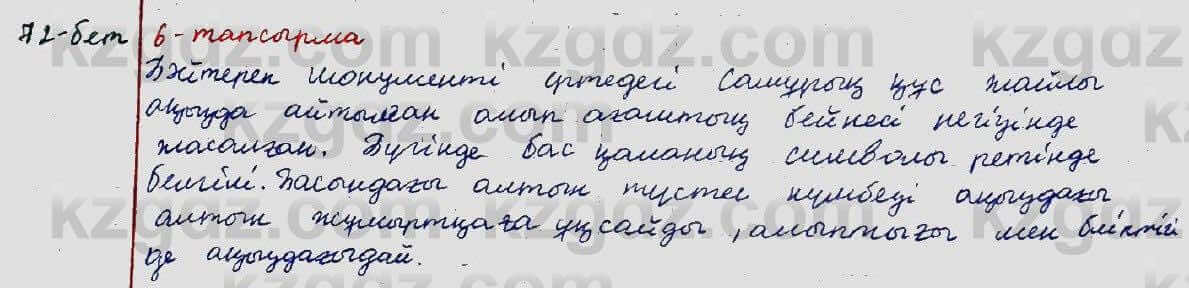 72-бет 6-тапсырма
Бәйтерек монументі ертедегі Самұрық құс жайлы
аңызда айтылған алып ағаштың бейнесі негізінде
жасалған. Бүгінде бас қаланың символы ретінде
белгілі. Басындағы алтын түстес күмбезі аңыздағы
алтын жұмыртқаға ұқсайды, алыптығы мен биіктігі
де аңыздағыдай.